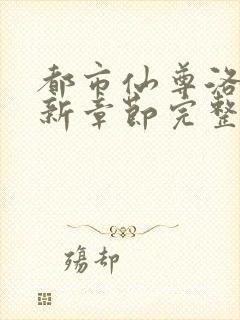 都市仙尊洛
新章节完整
殇却